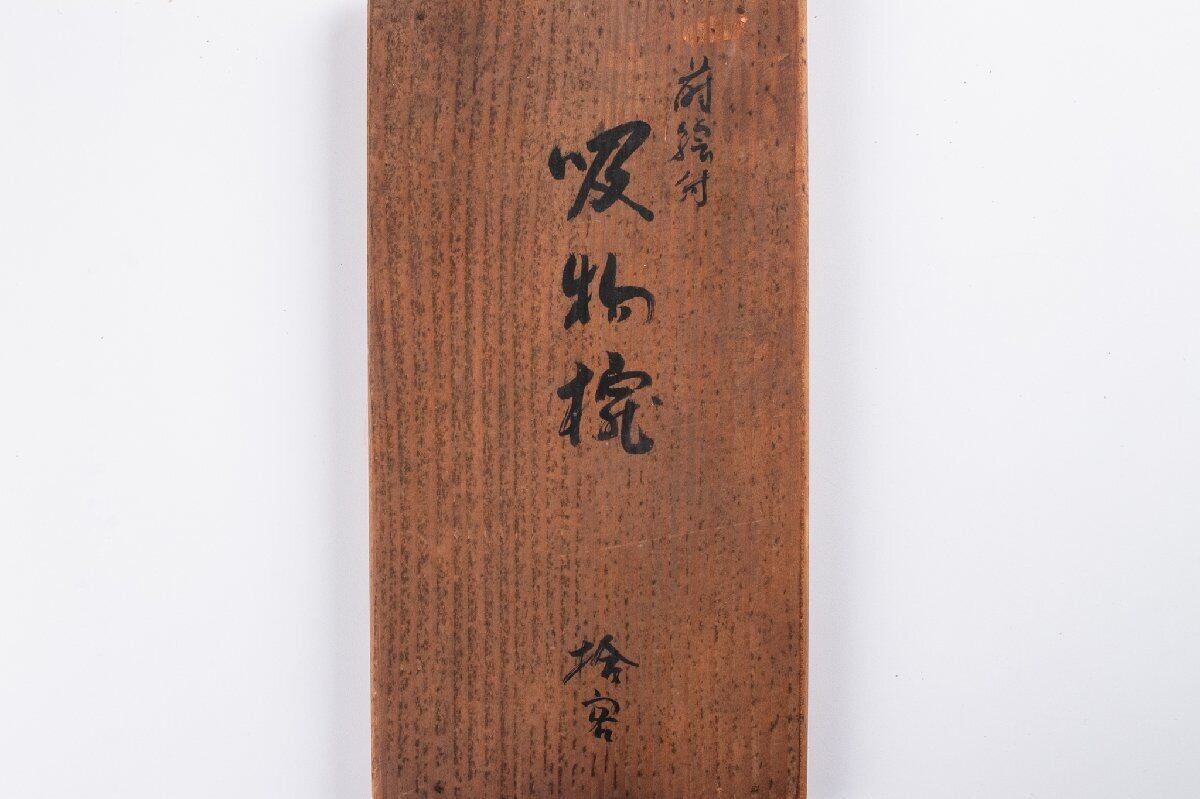 蒔絵付
吸物椀
拾客